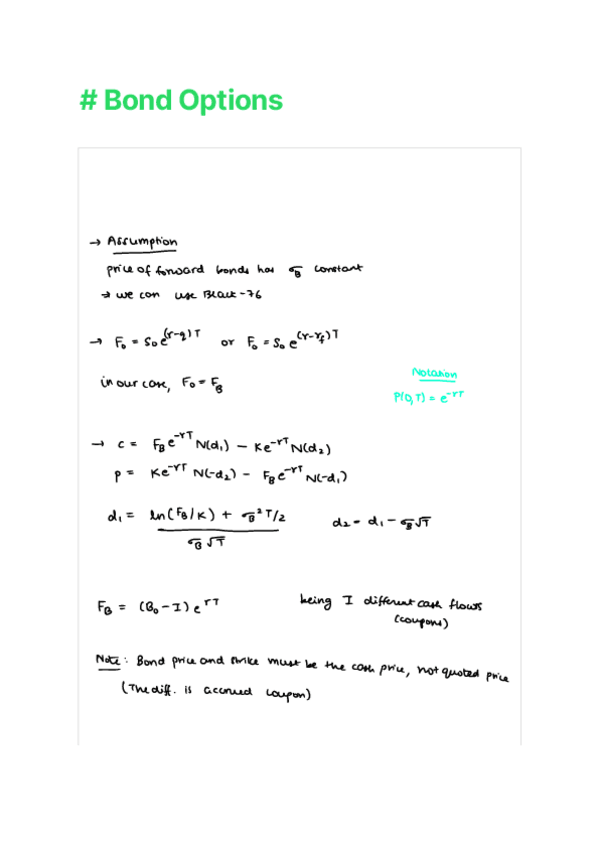 # Bond Options
→ Assumption
price of forward bonds has σ_B constant
→ we can use Black-76
→ F₀ = S₀e^(r-q)T or F₀ = S₀e^(r-r_f)T
in our case, F₀ = F_B
Notation
P(0,T) = e^-rT
→ c = F_B e^-rT N(d₁) - Ke^-rT N(d₂)
p = Ke^-rT N(-d₂) - F_B e^-rT N(-d₁)
d₁ = ln(F_B/K) + σ_B² T/2 / σ_B √T d₂ = d₁ - σ_B √T
F_B = (B₀ - I) e^rT being I different cash flows
(coupons)
Note: Bond price and strike must be the cash price, not quoted price
(The diff. is accrued coupon)